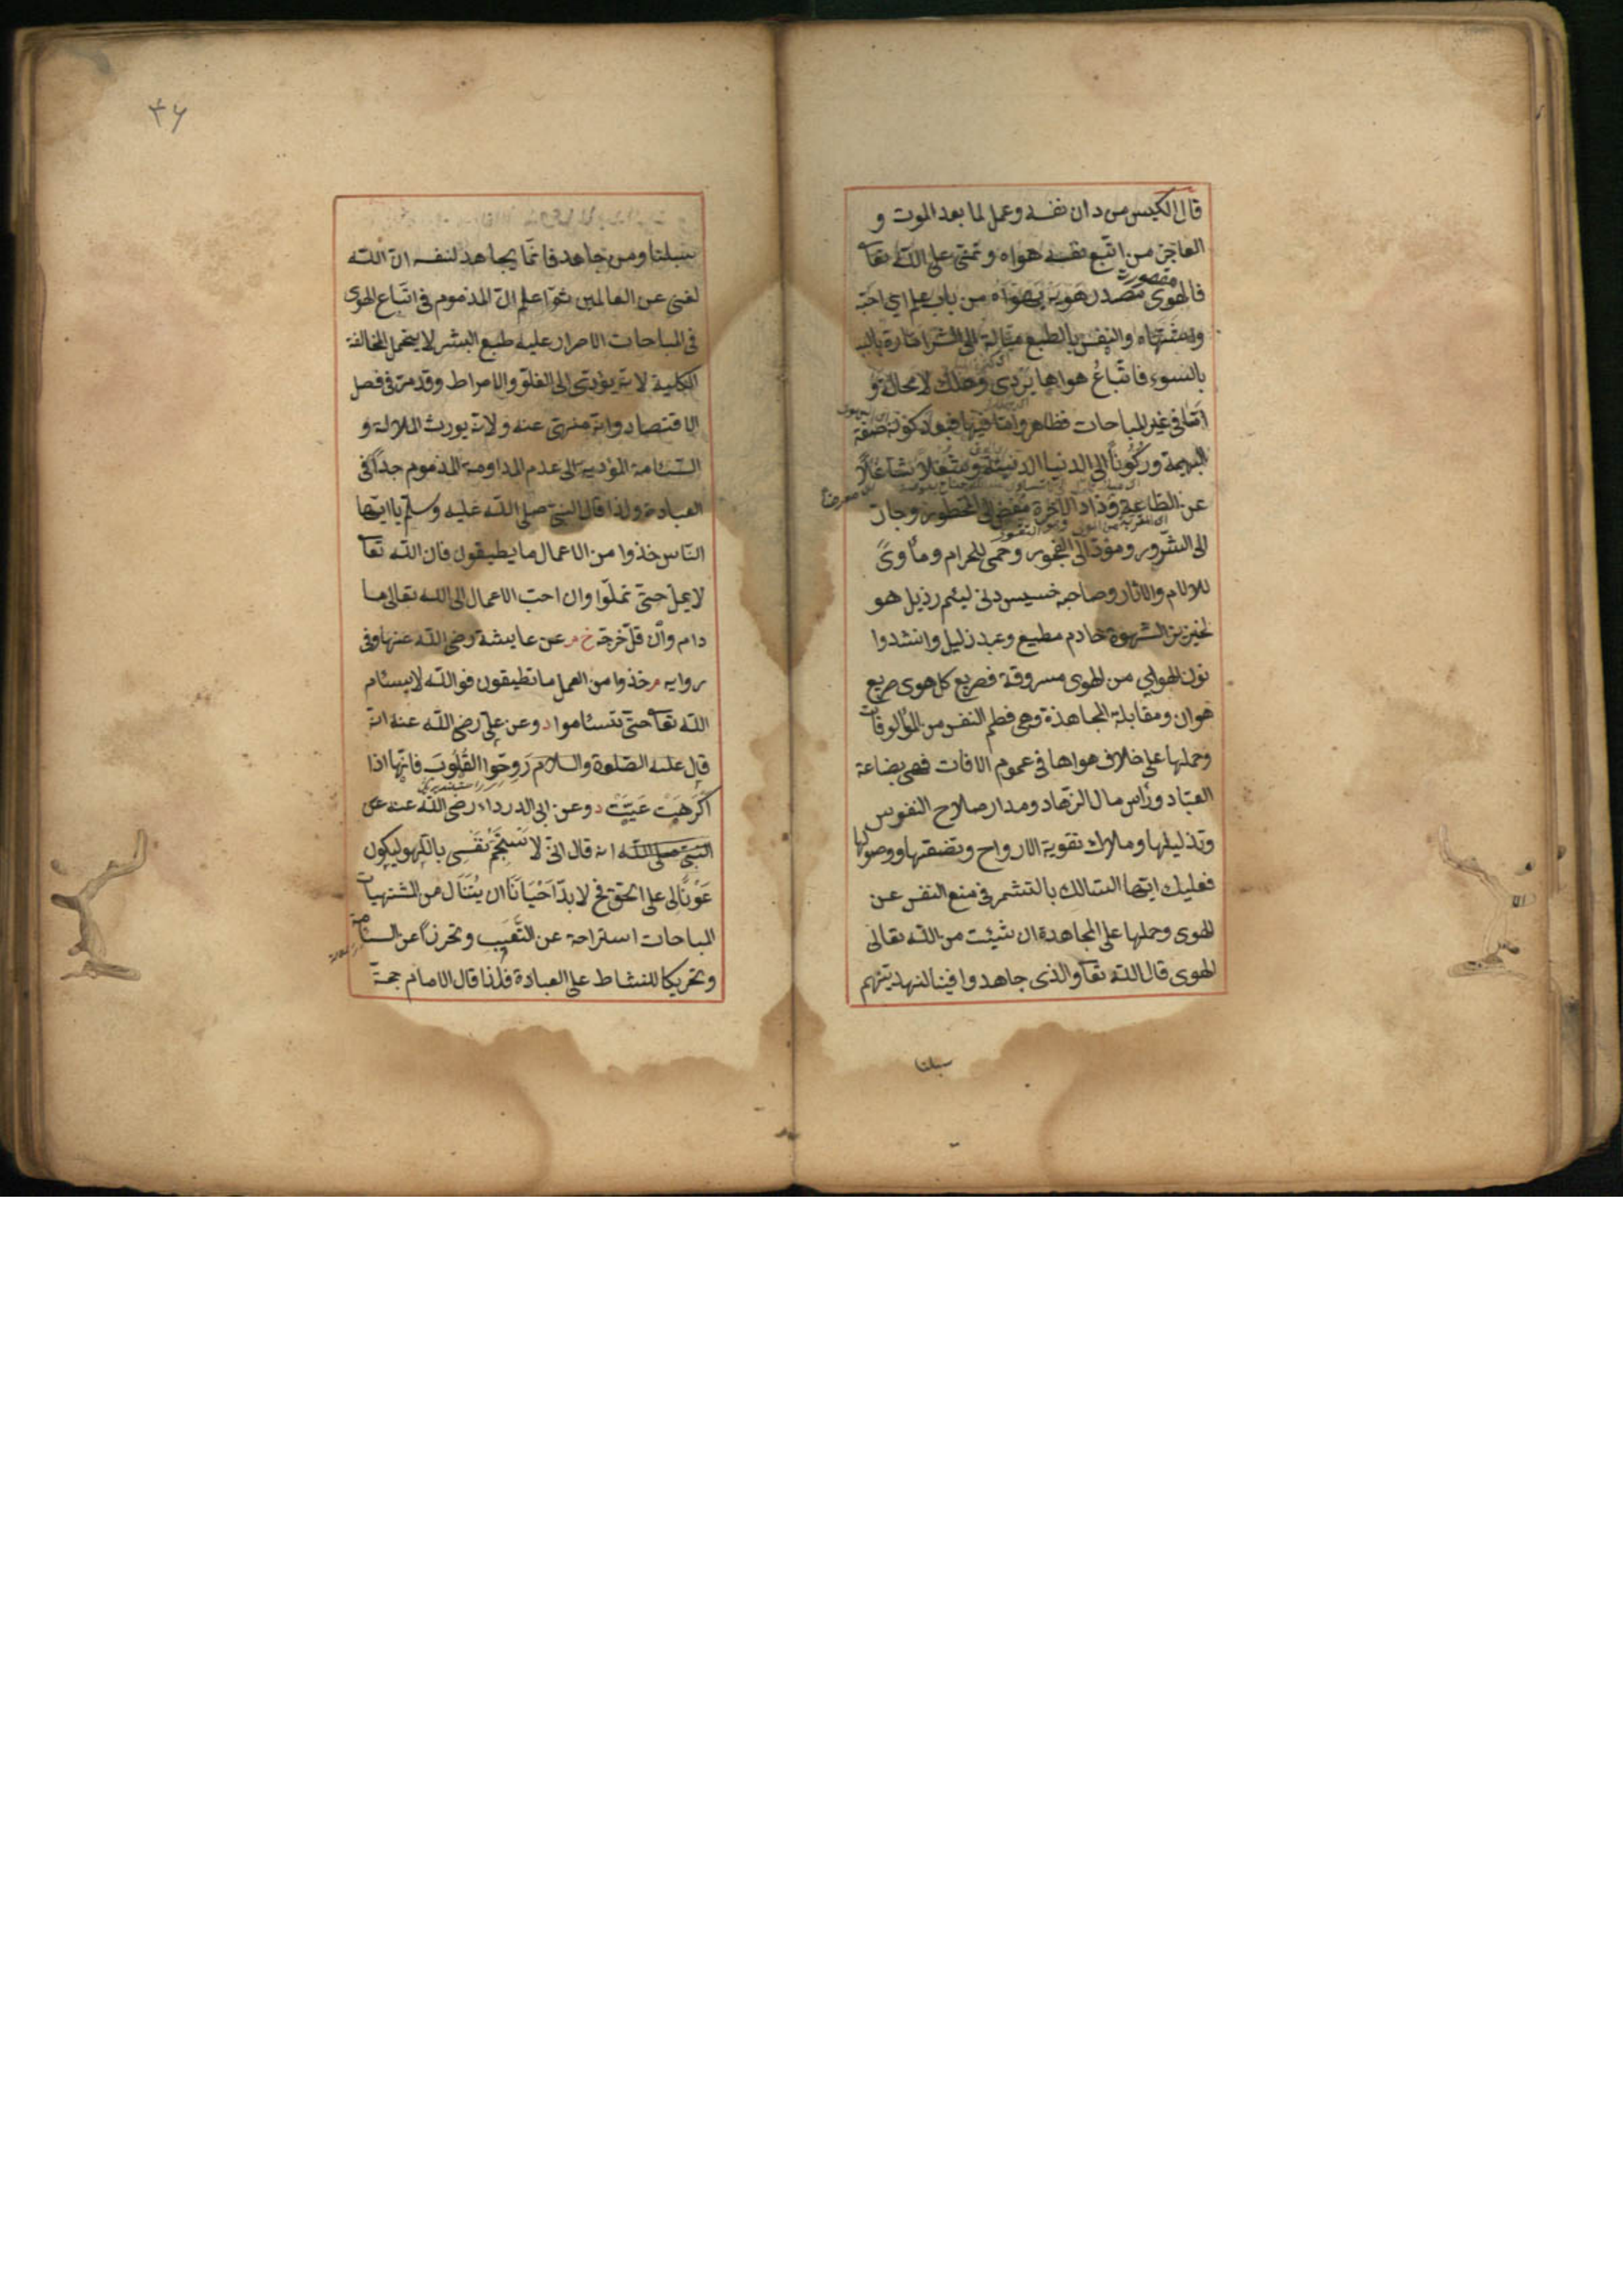 قال الكيس من دان نفسه وعمل لما بعد الموت و
العاجز من اتبع نفسه هواه وتمنى على الله تعا
فالهوى مقصورة مصدر هويه يهواه من باب علم اي احبه
واشتهاه والنفس بالطبع ميالة الى الشر امارة بالسـ
بالسوء فاتباعُ هواها يردى وهلك لا محالة و
امّا في غير المباحات فظاهر وامّا فيها فبعد كونه صفة
البهيمة وركوناً الى الدنيا الدنيئة وشغلا شاغلاً
عن الطاعة وزاد الآخرة مفض الى المحظور وجارّ
الى الشرور ومؤدّ الى الفجور وحمى للحرام ومأوىً
للآلام والآثار وصاحبه خسيس دنى ليئم رذيل هو
لخنزير الشهوة خادم مطيع وعبد زليل وانشدوا
نون الهوان من الهوى مسروقة فصريع كل هوى صريع
هوان ومقابلة المجاهدة وهى فطم النفس من المألوفات
وحملها على خلاف هواها في عموم الاوقات فهى بضاعة
العبّاد ورأس مال الزهّاد ومدار صلاح النفوس
وتذليلها وملاك تقوية الارواح وتصفيتها ووصولها
فعليك ايّها السالك بالتشمر في منع النفس عن
الهوى وحملها على المجاهدة ان شئت من الله تعالى
الهوى قال الله تعا والذى جاهدوا فينا لنهدينهم
سبلنا
٣٦
سبلنا ومن جاهد فانّما يجاهد لنفسه انّ الله
لغنى عن العالمين ثمّ اعلم انّ المذموم في اتباع الهوى
في المباحات الاصرار عليه طبع البشر لا يتحمل المخالفة
الكلية لانه يؤدى الى الغلوّ والافراط وقد مرّ في فصل
الاقتصاد وانه منهى عنه ولانه يورث الملالة و
السّئامة المؤدية الى عدم المداومة المذموم جداً في
العبادة ولذا قال النبى صلى الله عليه وسلم يا ايّها
النّاس خذوا من الاعمال ما يطيقون فان الله تعا
لا يملّ حتى تملّوا وان احبّ الاعمال الى الله تعالى ما
دام وان قلّ خرجه خ م عن عايشة رضى الله عنها وفى
روايه م خذوا من العمل ما تطيقون فوالله لا يسئام
الله تعا حتى تسئاموا د وعن على رضى الله عنه انه
قال عليه الصلوة والسلام رَوِحّوا القُلُوبَ فانّها اذا
اُكْرِهَتْ عَيَتْ د وعن ابى الدرداء رضى الله عنه عن
النبى صلى الله انه قال انّى لاَسْتَجِمُّ نَفْسِى باللهو ليكون
عَوْنًا لى على الحق فح لا بدّ اَحْيَانًا ان يُتَنَاَل من المشتهيات
المباحات استراحة عن التّعَب وتحرزاً عن السئامة
وتحريكا للنشاط على العبادة فلذا قال الامام حجة